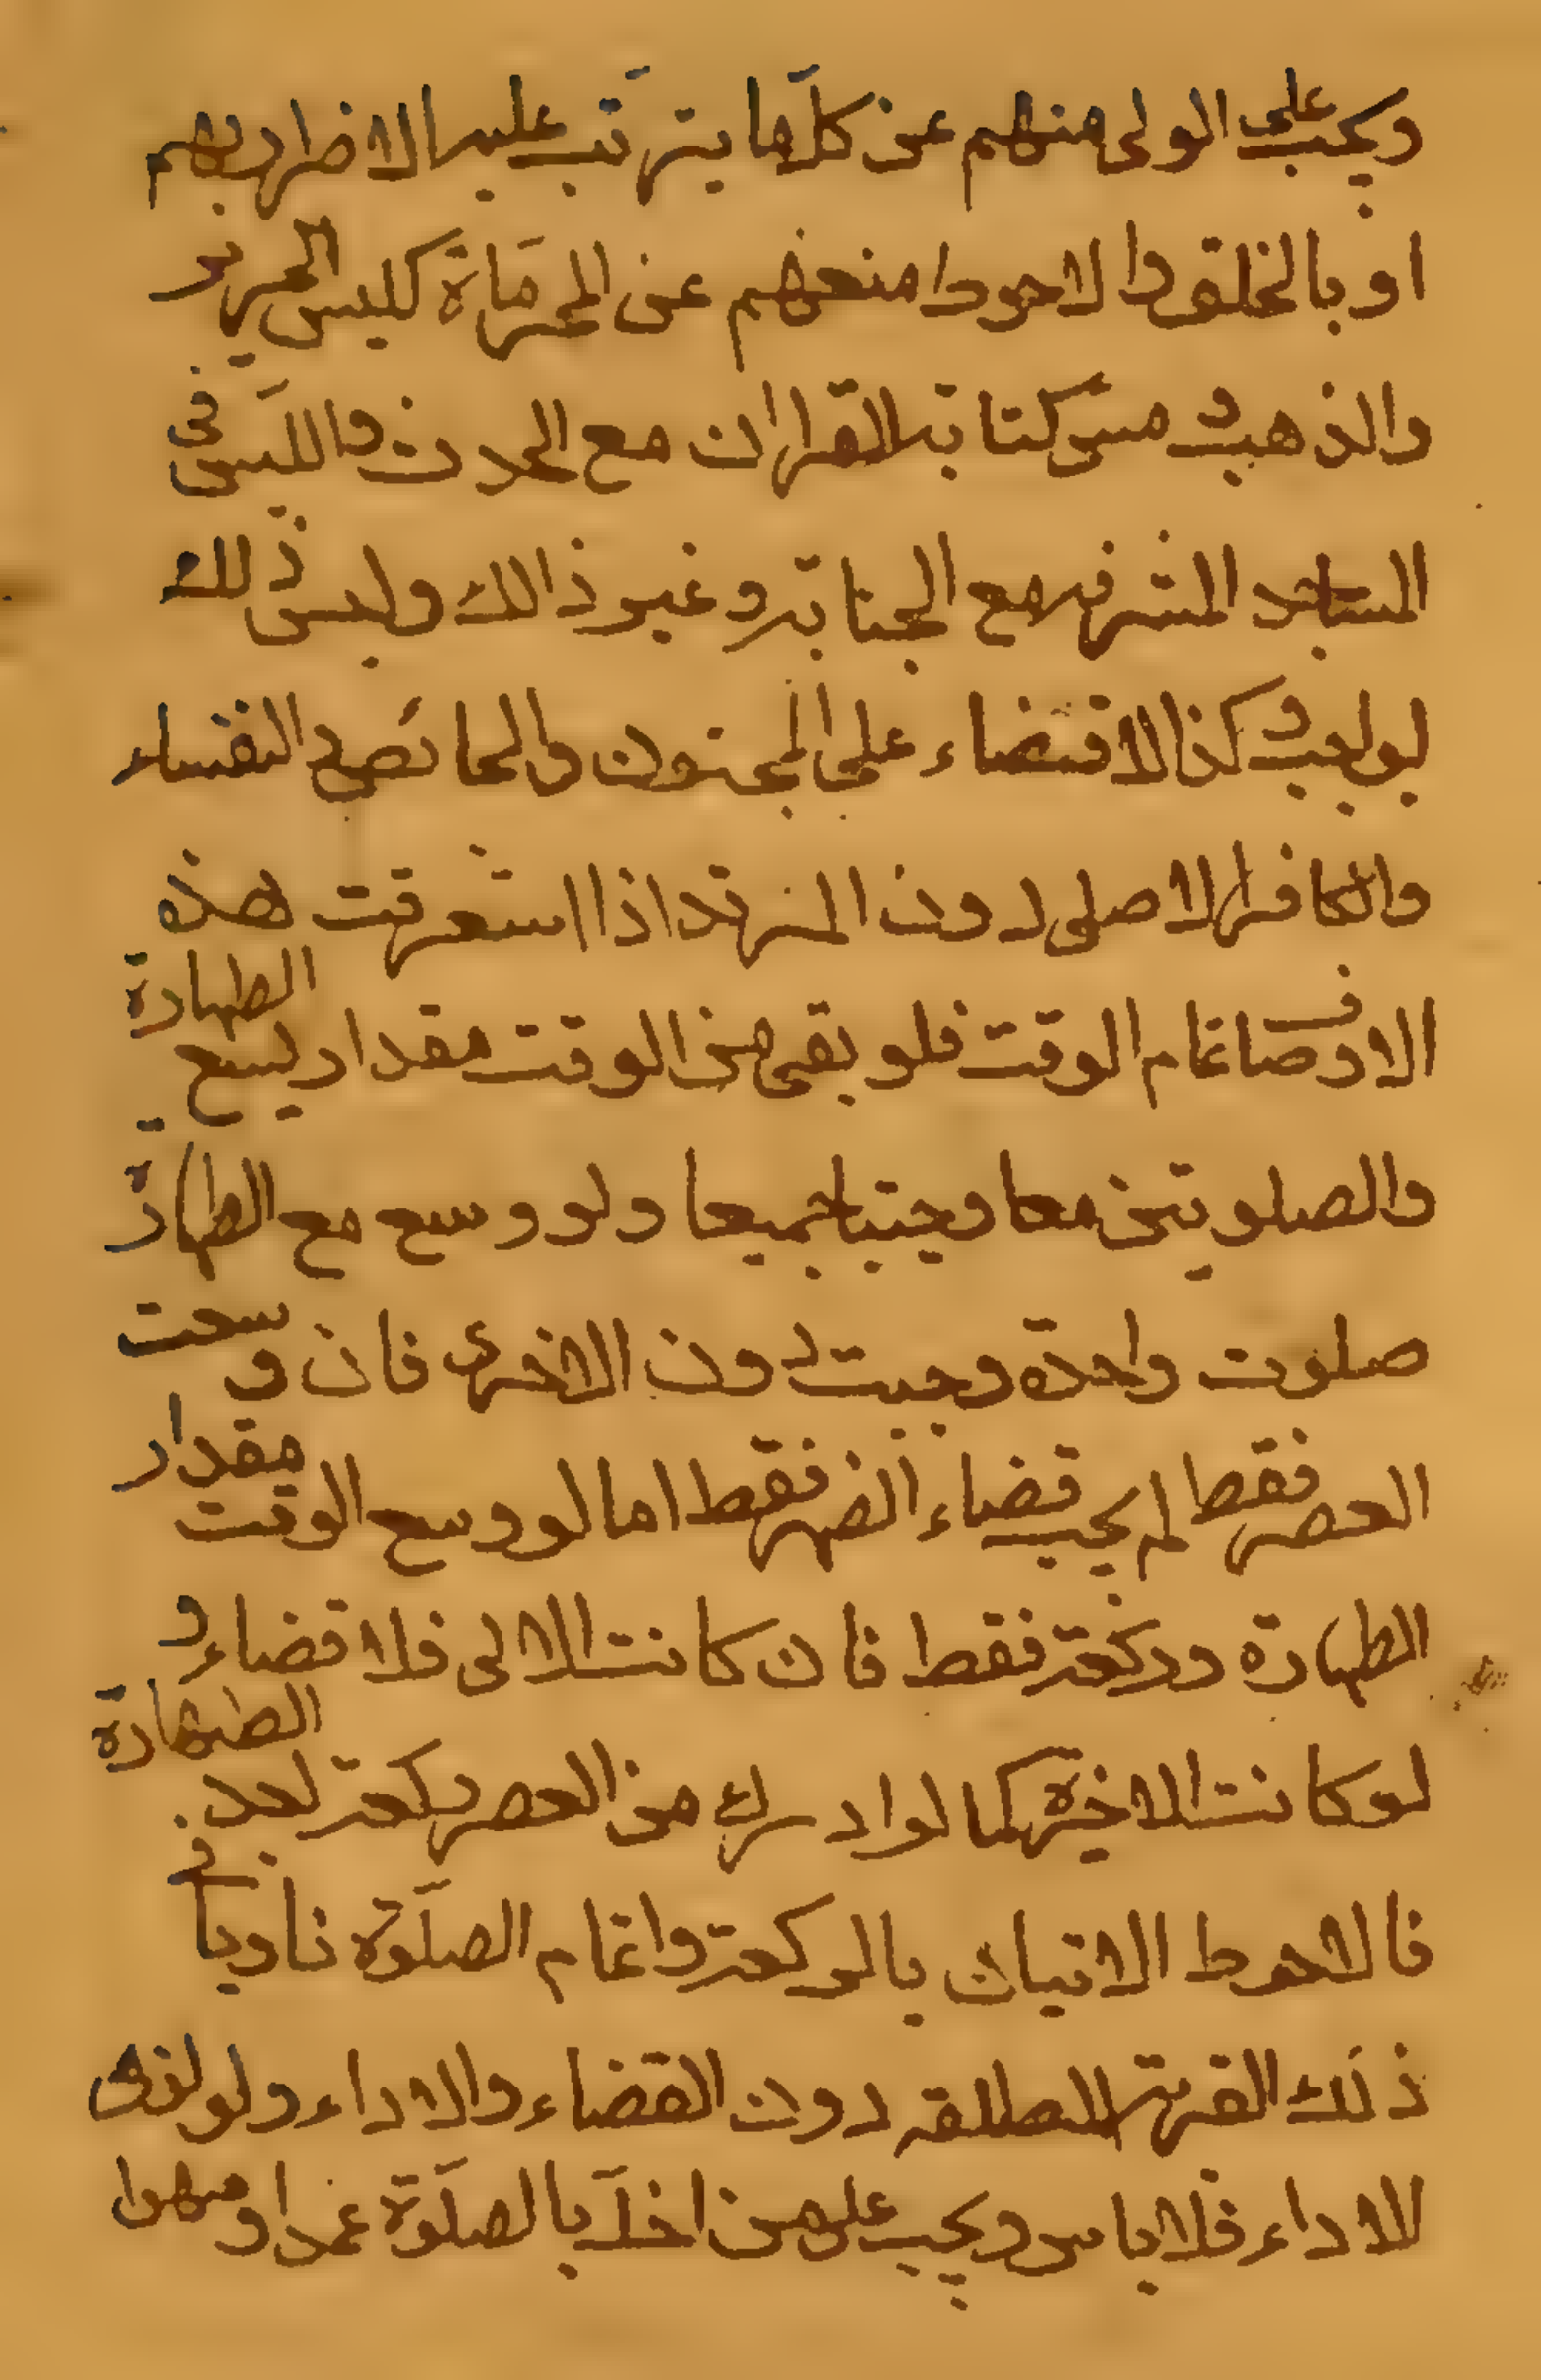 ويجب على الولى منهم عن كلّما يترتّب عليه الاضرار بهم
او بالخلق والاحوط منعهم عن المحرّماة كلبس الحرير
والذهب ومس كتابة القراان مع الحدث واللبّس فى
المساجد المشرفه مع الجنابة وغير ذالك وليس ذلك
بواجب وكذا لا قضاء على المجنون والحائض والنفساء
والكافر الاصلى دون المرتد اذا استغرقت هذه
الاوصاف تمام الوقت فلو بقى من الوقت مقدار يسع الطهارة
والصلوتين معا وجبتا جميعا ولو وسع مع الطهارة
صلوت واحدة وجبت دون الاخرى فان وسعت
العصر فقط لم يجب قضاء الضهر فقط اما لو وسع الوقت مقدار
الطهارة وركعة فقط فان كانت الاولى فلا قضاء و
لو كانت الاخيرة كما لو ادرك من العصر ركعة بعد الطهارة
فالاحوط الاتيان بالركعة واتمام الصلّوة ناويا فى
ذلك القربة المطلقه دون القضاء والاداء ولو نوى
للاداء فلا باس ويجب على من اخلّ بالصلّوة عمدا وسهوا